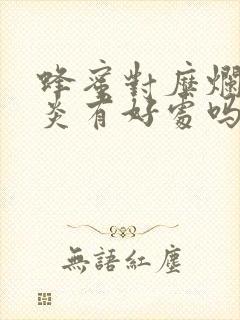 蜂蜜對糜爛
炎有好處嗎
無語紅塵